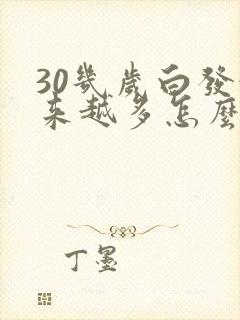 30幾歲白發
來越多怎麼
丁墨